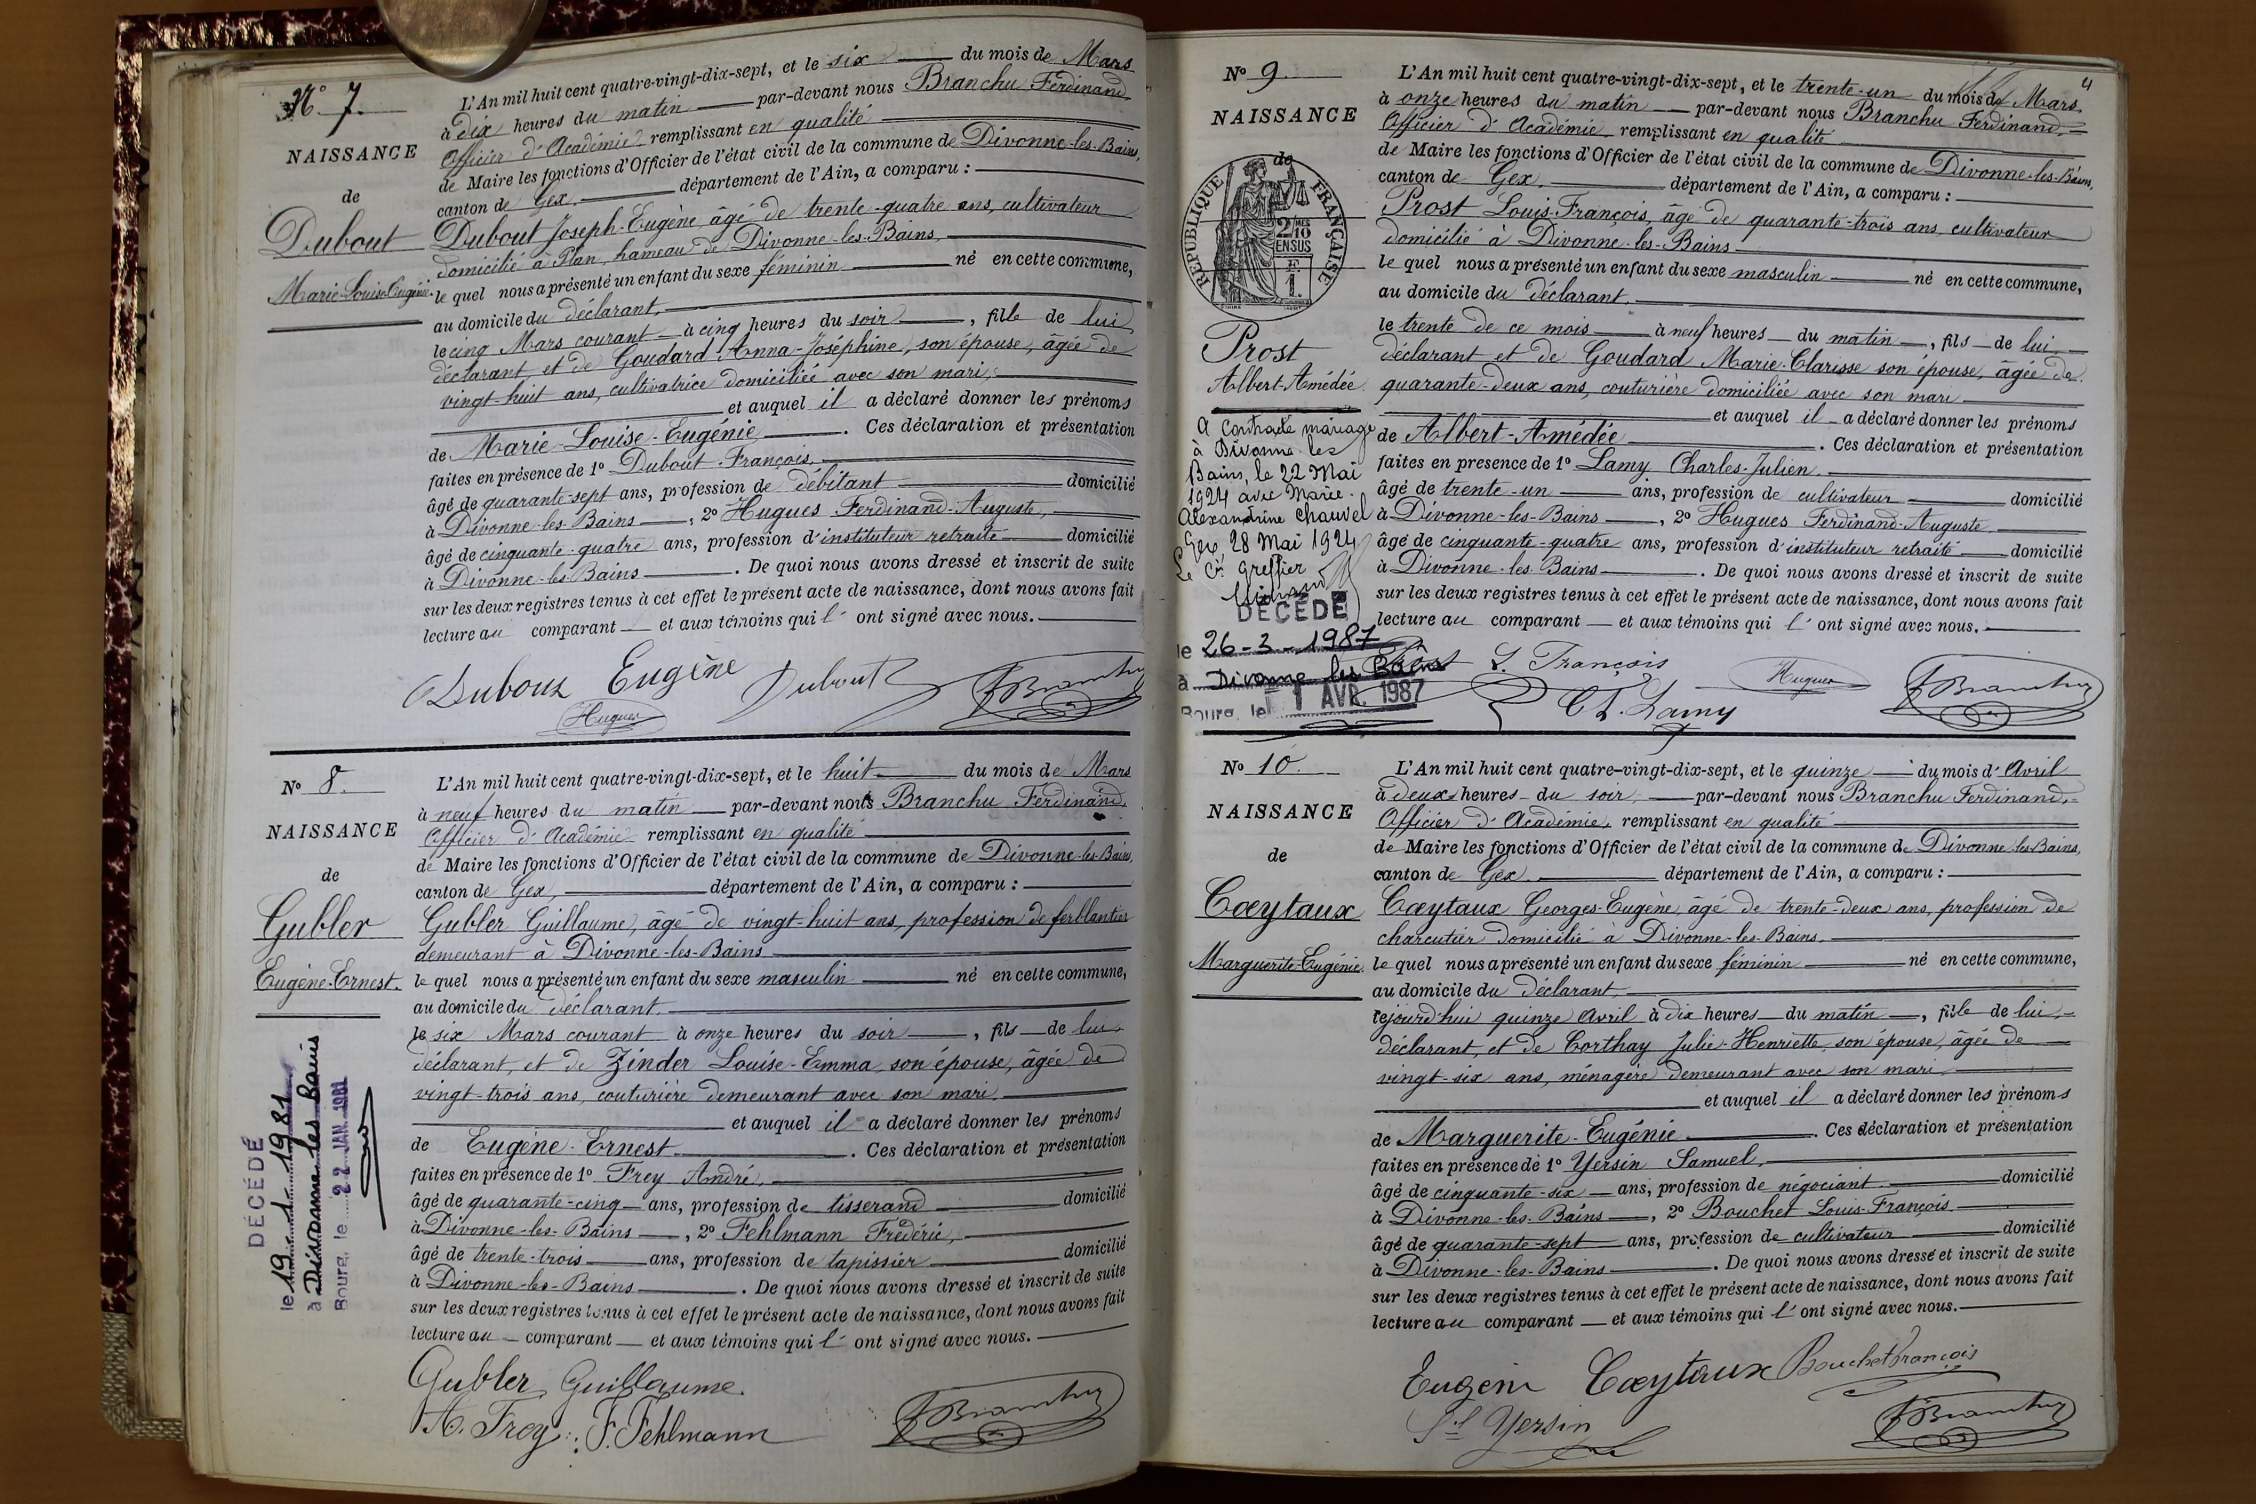 N° 7.
NAISSANCE
de
Dubout
Marie-Louise-Eugénie.
L'An mil huit cent quatre-vingt-dix-sept, et le six du mois de Mars
à dix heures du matin par-devant nous Branchu Ferdinand
Officier d'Académie remplissant en qualité
de Maire les fonctions d'Officier de l'état civil de la commune de Divonne-les-Bains,
canton de Gex, département de l'Ain, a comparu :
Dubout Joseph-Eugène âgé de trente-quatre ans, cultivateur
domicilié à Plan, hameau de Divonne-les-Bains,
le quel nous a présenté un enfant du sexe féminin né en cette commune,
au domicile du déclarant,
le cinq Mars courant à cinq heures du soir, fille de lui
déclarant et de Goudard Anna-Joséphine, son épouse, âgée de
vingt-huit ans, cultivatrice domiciliée avec son mari,
et auquel il a déclaré donner les prénoms
de Marie-Louise-Eugénie. Ces déclaration et présentation
faites en présence de 1° Dubout François,
âgé de quarante-sept ans, profession de débitant domicilié
à Divonne-les-Bains, 2° Hugues Ferdinand-Auguste,
âgé de cinquante-quatre ans, profession d'instituteur retraité domicilié
à Divonne-les-Bains. De quoi nous avons dressé et inscrit de suite
sur les deux registres tenus à cet effet le présent acte de naissance, dont nous avons fait
lecture au comparant et aux témoins qui l' ont signé avec nous.
Dubout Eugène Dubout F. Branchu
Hugues
N° 8.
NAISSANCE
de
Gubler
Eugène-Ernest.
DÉCÉDÉ
le 19-1-1981
à Divonne les Bains
Bourg, le 22 JAN. 1981
L'An mil huit cent quatre-vingt-dix-sept, et le huit du mois de Mars
à neuf heures du matin par-devant nous Branchu Ferdinand,
Officier d'Académie remplissant en qualité
de Maire les fonctions d'Officier de l'état civil de la commune de Divonne-les-Bains,
canton de Gex, département de l'Ain, a comparu :
Gubler Guillaume, âgé de vingt-huit ans, profession de ferblantier
demeurant à Divonne-les-Bains
le quel nous a présenté un enfant du sexe masculin né en cette commune,
au domicile du déclarant.
le six Mars courant à onze heures du soir, fils de lui
déclarant, et de Zinder Louise-Emma, son épouse, âgée de
vingt-trois ans, couturière demeurant avec son mari.
et auquel il a déclaré donner les prénoms
de Eugène-Ernest. Ces déclaration et présentation
faites en présence de 1° Frey André,
âgé de quarante-cinq ans, profession de tisserand domicilié
à Divonne-les-Bains, 2° Fehlmann Frédéric,
âgé de trente-trois ans, profession de tapissier domicilié
à Divonne-les-Bains. De quoi nous avons dressé et inscrit de suite
sur les deux registres tenus à cet effet le présent acte de naissance, dont nous avons fait
lecture au comparant et aux témoins qui l' ont signé avec nous.
Gubler Guillaume
A. Frey F. Fehlmann F. Branchu
4
N° 9.
NAISSANCE
de
RÉPUBLIQUE FRANÇAISE
2/10 EN SUS
F.
1.
Prost
Albert-Amédée.
A contracté mariage
à Divonne les
Bains, le 22 Mai
1924 avec Marie-
Alexandrine Chauvel
Gex, 28 Mai 1924
Le Cis Greffier
DÉCÉDÉ
le 26-3-1987
à Divonne les Bains
Bourg, le 1 AVR. 1987
L'An mil huit cent quatre-vingt-dix-sept, et le trente-un du mois de Mars
à onze heures du matin par-devant nous Branchu Ferdinand,
Officier d'Académie remplissant en qualité
de Maire les fonctions d'Officier de l'état civil de la commune de Divonne-les-Bains,
canton de Gex, département de l'Ain, a comparu :
Prost Louis-François, âgé de quarante-trois ans, cultivateur
domicilié à Divonne-les-Bains
le quel nous a présenté un enfant du sexe masculin né en cette commune,
au domicile du déclarant.
le trente de ce mois à neuf heures du matin, fils de lui
déclarant et de Goudard Marie-Clarisse son épouse, âgée de
quarante-deux ans, couturière domiciliée avec son mari
et auquel il a déclaré donner les prénoms
de Albert-Amédée. Ces déclaration et présentation
faites en présence de 1° Lamy Charles-Julien,
âgé de trente-un ans, profession de cultivateur domicilié
à Divonne-les-Bains, 2° Hugues Ferdinand-Auguste
âgé de cinquante-quatre ans, profession d'instituteur retraité domicilié
à Divonne-les-Bains. De quoi nous avons dressé et inscrit de suite
sur les deux registres tenus à cet effet le présent acte de naissance, dont nous avons fait
lecture au comparant et aux témoins qui l' ont signé avec nous.
Prost L. François Hugues F. Branchu
Ch. Lamy
N° 10.
NAISSANCE
de
Cœytaux
Marguerite-Eugénie.
L'An mil huit cent quatre-vingt-dix-sept, et le quinze du mois d'Avril
à deux heures du soir, par-devant nous Branchu Ferdinand,
Officier d'Académie, remplissant en qualité
de Maire les fonctions d'Officier de l'état civil de la commune de Divonne-les-Bains,
canton de Gex, département de l'Ain, a comparu :
Cœytaux Georges-Eugène, âgé de trente-deux ans, profession de
charcutier domicilié à Divonne-les-Bains,
le quel nous a présenté un enfant du sexe féminin né en cette commune,
au domicile du déclarant,
cejourd'hui quinze Avril à dix heures du matin, fille de lui,
déclarant, et de Corthay Julie-Henriette, son épouse, âgée de
vingt-six ans, ménagère demeurant avec son mari,
et auquel il a déclaré donner les prénoms
de Marguerite-Eugénie. Ces déclaration et présentation
faites en présence de 1° Yersin Samuel,
âgé de cinquante-six ans, profession de négociant domicilié
à Divonne-les-Bains, 2° Bouchet Louis-François
âgé de quarante-sept ans, profession de cultivateur domicilié
à Divonne-les-Bains. De quoi nous avons dressé et inscrit de suite
sur les deux registres tenus à cet effet le présent acte de naissance, dont nous avons fait
lecture au comparant et aux témoins qui l' ont signé avec nous.
Eugène Cœytaux Bouchet François
Sl Yersin F. Branchu